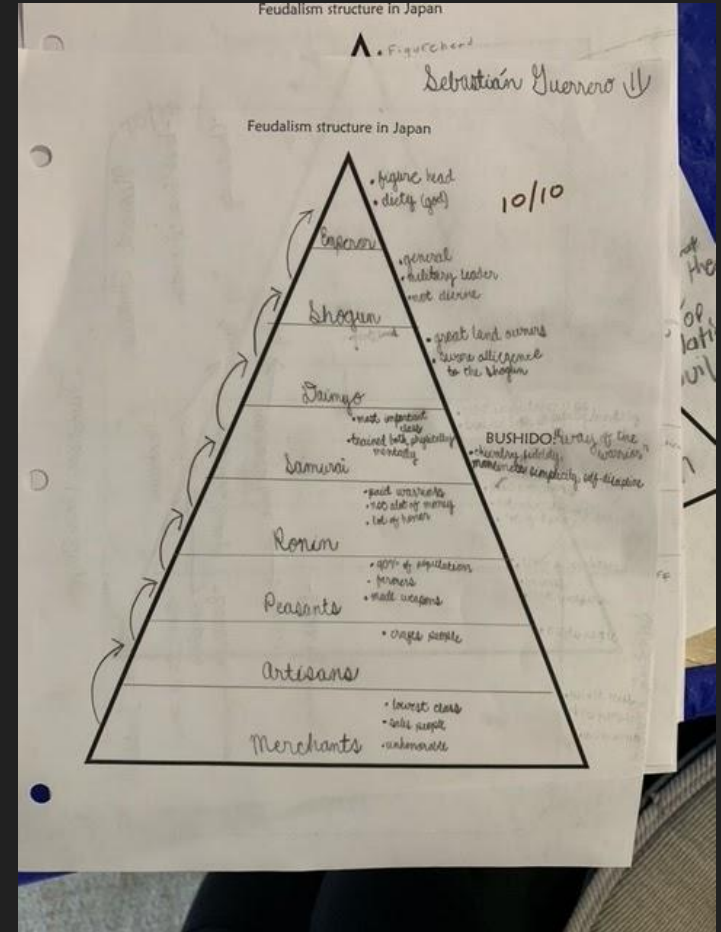 Feudalism structure in Japan
• Figurehead
Sebastián Guerrero
Feudalism structure in Japan
• figure head
• diety (god)
10/10
Emperor
• general
• military leader
• not divine
Shogun
• great land owners
• swore allegence
to the shogun
Daimyo
• most important
class
• trained both physically
mentally
BUSHIDO: "way of the
warrior"
• chivalry, fidelity,
simplicity, self-disipline
Samurai
• paid warriors
• not alot of money
• lot of honor
Ronin
• 90% of population
- farmers
• made weapons
Peasants
• crafts people
Artisans
• lowest class
• sales people
• unhonorable
Merchants
the